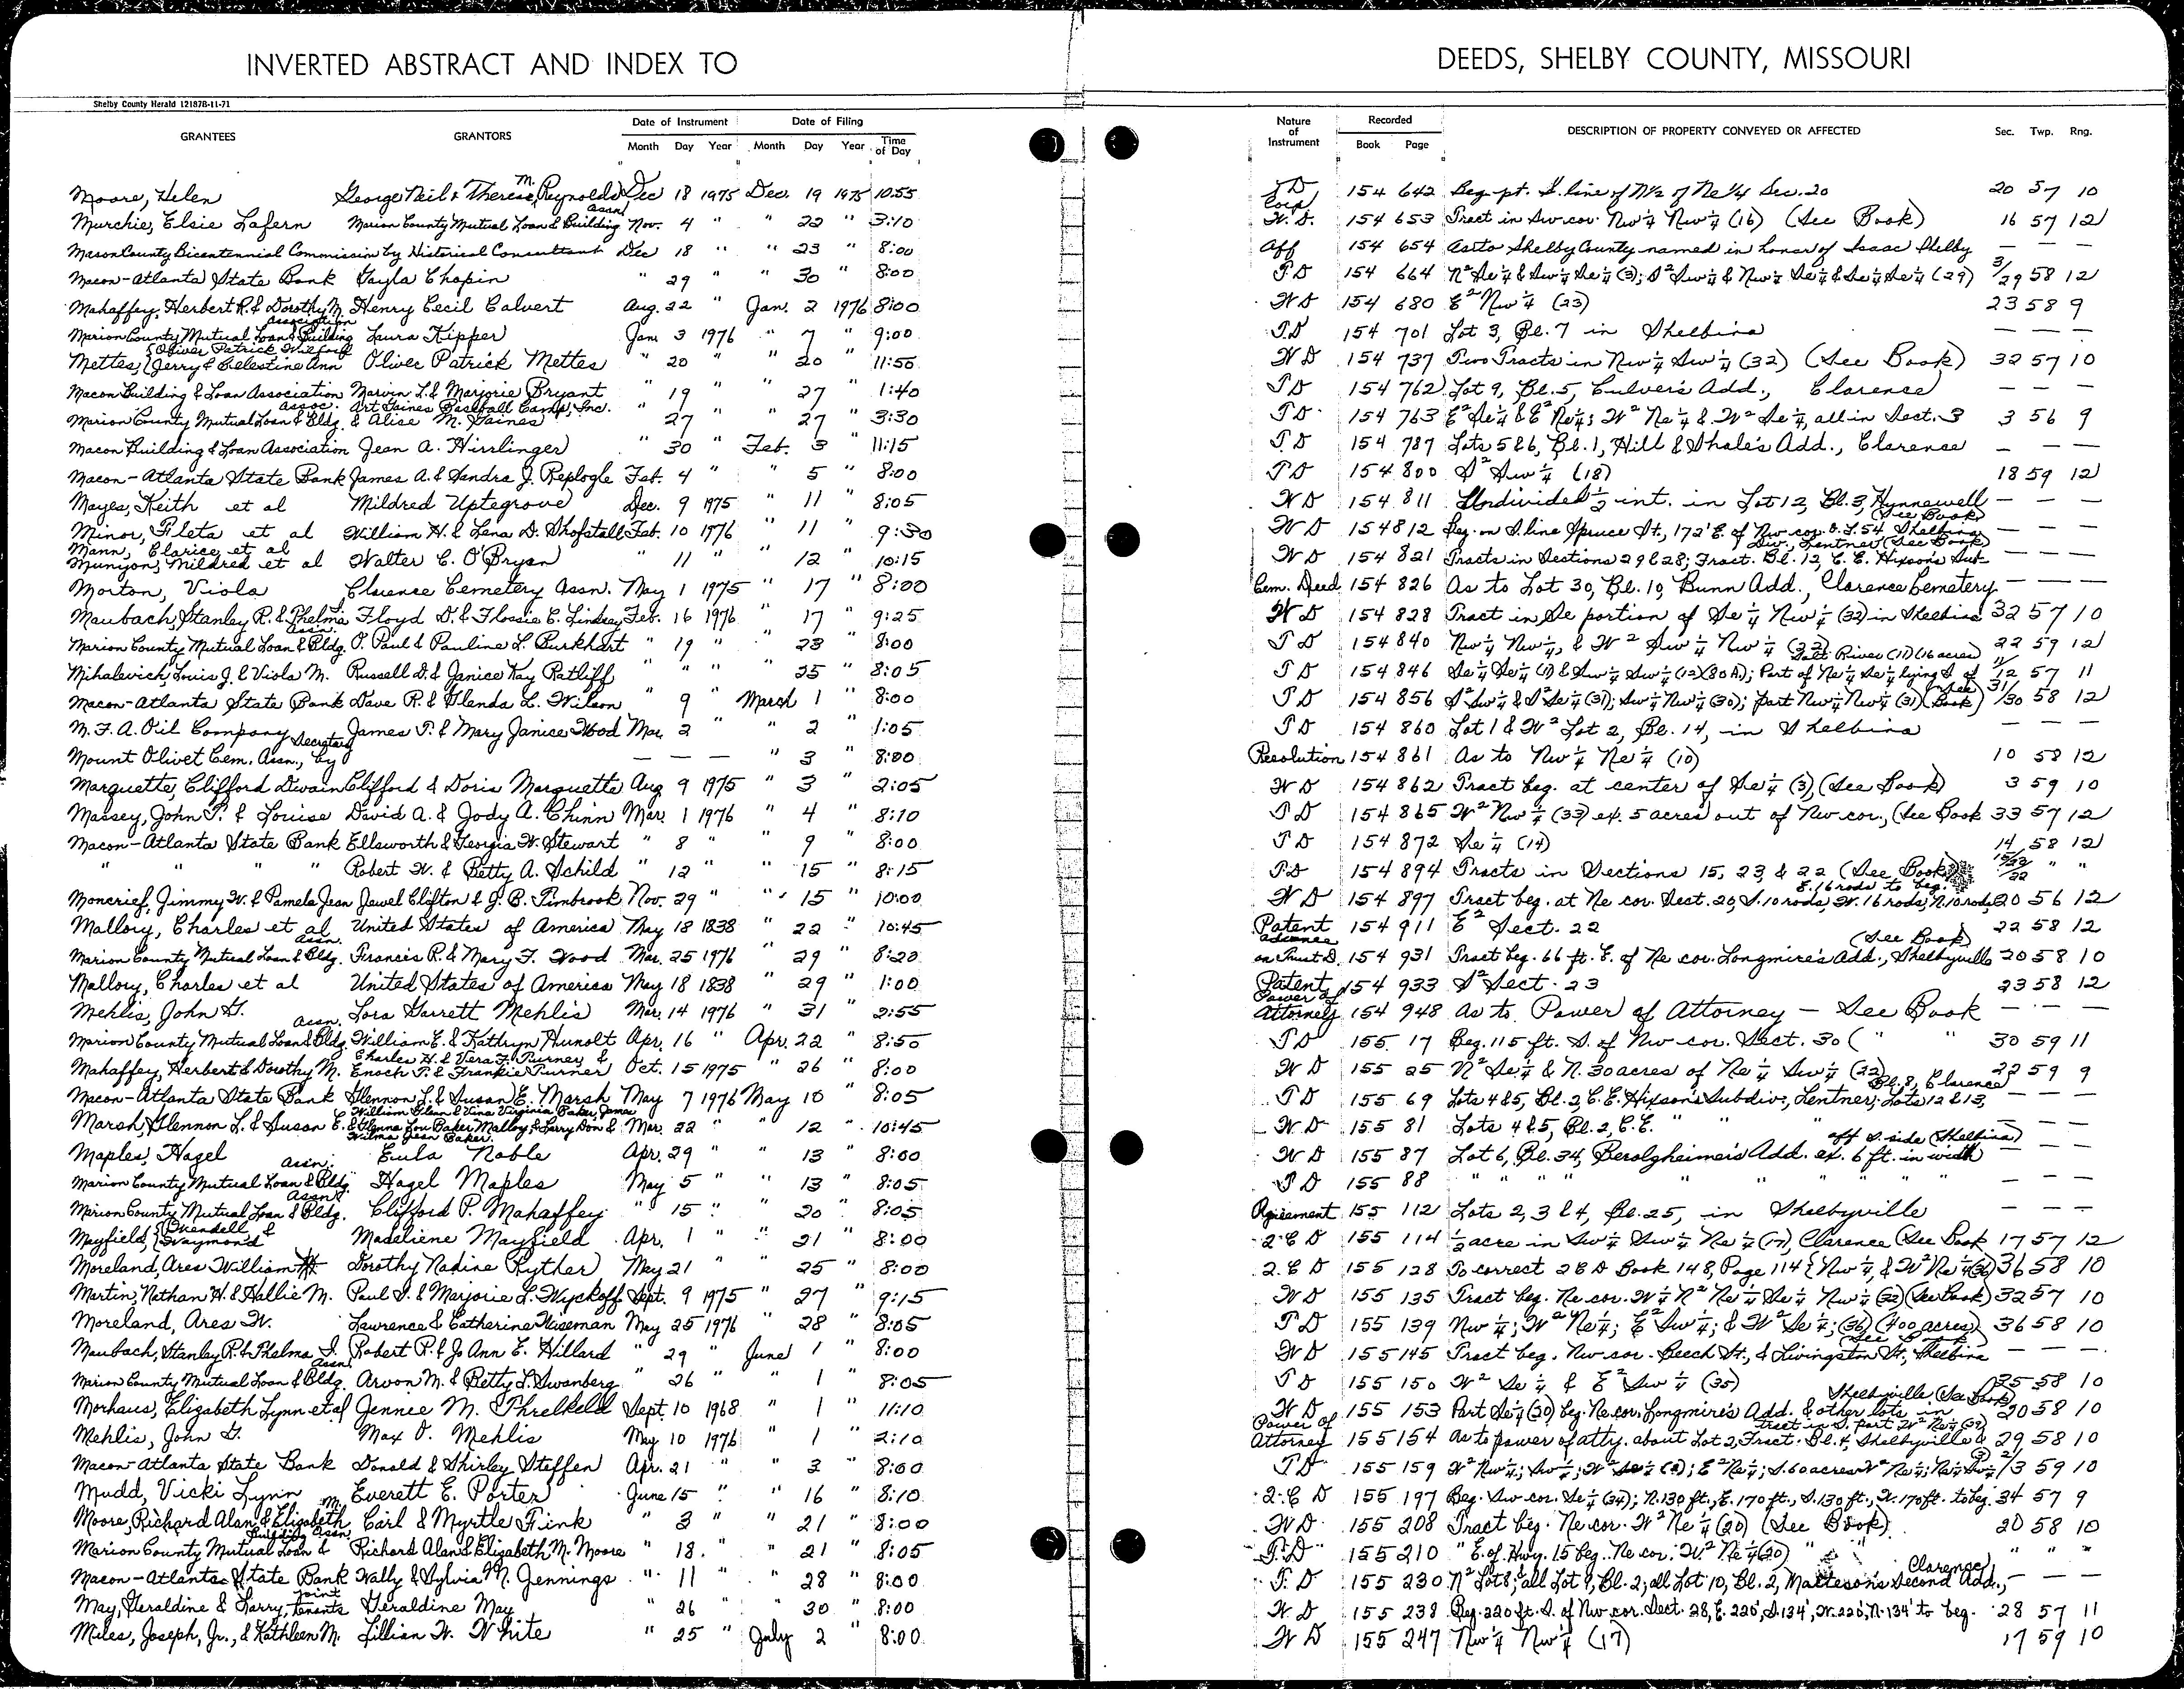 INVERTED ABSTRACT AND INDEX TO
DEEDS, SHELBY COUNTY, MISSOURI
Shelby County Herald 12187B-11-71
GRANTEES GRANTORS Date of Instrument Month Day Year Date of Filing Month Day Year Time of Day Nature of Instrument Recorded Book Page DESCRIPTION OF PROPERTY CONVEYED OR AFFECTED Sec. Twp. Rng.
Moore, Helen George Neil & Therese M. Reynolds Dec 18 1975 Dec. 19 1975 10:55 TD 154 642 Beg. pt. S. line of N½ of Ne¼ Sec. 20 20 57 10
Murchie, Elsie Lafern Marion County Mutual Loan & Building Assn Nov. 4 " " 22 " 3:10 Corp W.D. 154 653 Tract in Sw cor. Nw¼ Nw¼ (16) (See Book) 16 57 12
Macon County Bicentennial Commission by Historical Consultant Dec 18 " " 23 " 8:00 Aff 154 654 As to Shelby County named in honor of Isaac Shelby — — —
Macon-Atlanta State Bank Gayla Chapin " 29 " 30 " 8:00 TD 154 664 N² Se¼ & Sw¼ Se¼ (3); S² Sw¼ & Nw¼ Se¼ & Se¼ Se¼ (29) 3/29 58 12
Mahaffey, Herbert R. & Dorothy M. Henry Cecil Calvert Aug. 22 " Jan. 2 1976 8:00 WD 154 680 E² Nw¼ (23) 23 58 9
Marion County Mutual Loan & Building Association Laura Kipper Jan 3 1976 " 7 " 9:00 T.D 154 701 Lot 3, Bl. 7 in Shelbina — — —
Mettes, {Oliver Patrick Wilford {Jerry & Celestine Ann Oliver Patrick Mettes " 20 " " 20 " 11:55 WD 154 737 Two Tracts in Nw¼ Sw¼ (32) (See Book) 32 57 10
Macon Building & Loan Association Marvin L. & Marjorie Bryant " 19 " " 27 " 1:40 TD 154 762 Lot 9, Bl. 5, Culver's Add., Clarence — — —
Marion County Mutual Loan & Bldg. Assoc. Art Gaines Baseball Camp, Inc. & Alice M. Gaines " 27 " 27 " 3:30 TD 154 763 E² Se¼ & E² Ne¼; W² Ne¼ & W² Se¼, all in Sect. 3 3 56 9
Macon Building & Loan Association Jean A. Hirrlinger " 30 " Feb. 3 " 11:15 T.D 154 787 Lots 5 & 6, Bl. 1, Hill & Shale's Add., Clarence — — —
Macon-Atlanta State Bank James A. & Sandra J. Replogle Feb. 4 " " 5 " 8:00 TD 154 800 S² Sw¼ (18) 18 59 12
Mayes, Keith et al Mildred Uptegrove Dec. 9 1975 " 11 " 8:05 WD 154 811 Undivided ½ int. in Lot 12, Bl. 3, Hunnewell — — —
Minor, Fleta et al William H. & Lena D. Shofstall Feb. 10 1976 " 11 " 9:30 WD 154 812 Beg. on S. line Spruce St., 172' E. of Nw cor. O.L. 54 Shelbina (See Book) — — —
Mann, Clarice et al Munyon, Mildred et al Walter C. O'Bryan " 11 " " 12 " 10:15 WD 154 821 Tracts in Sections 29 & 28; Fract. Bl. 12, C.E. Hixson's Sub-Div. Lentner (See Book) — — —
Morton, Viola Clarence Cemetery Assn. May 1 1975 " 17 " 8:00 Cem. Deed 154 826 As to Lot 30, Bl. 10, Bunn Add., Clarence Cemetery — — —
Maubach, Stanley R. & Thelma I. Floyd D. & Flossie E. Lindsey Feb. 16 1976 " 17 " 9:25 WD 154 828 Tract in Se portion of Se¼ Nw¼ (32) in Shelbina 32 57 10
Marion County Mutual Loan & Bldg. Assn. O. Paul & Pauline L. Burkhart " 19 " " 23 " 8:00 TD 154 840 Nw¼ Nw¼, & W² Sw¼ Nw¼ (22) 22 59 12
Mihalevich, Louis J. & Viola M. Russell D. & Janice Kay Ratliff " " " " 25 " 8:05 TD 154 846 Se¼ Se¼ (11) & Sw¼ Sw¼ (12)(80 A); Part of Ne¼ Se¼ lying S of Salt River (11) (16 acres) 11/12 57 11
Macon-Atlanta State Bank Dave R. & Glenda L. Wilson " 9 " March 1 " 8:00 TD 154 856 S² Sw¼ & S² Se¼ (31); Sw¼ Nw¼ (30); part Nw¼ Nw¼ (31) (See Book) 31/30 58 12
M.F.A. Oil Company James T. & Mary Janice Wood Mar. 2 " " 2 " 1:05 TD 154 860 Lot 1 & W² Lot 2, Bl. 14, in Shelbina — — —
Mount Olivet Cem. Assn., by Secretary — — — " 3 " 8:00 Resolution 154 861 As to Nw¼ Ne¼ (10) 10 58 12
Marquette, Clifford Dwain Clifford & Doris Marquette Aug 9 1975 " 3 " 2:05 WD 154 862 Tract beg. at center of Se¼ (3), (See Book) 3 59 10
Massey, John T. & Louise David A. & Jody A. Chinn Mar. 1 1976 " 4 " 8:10 TD 154 865 W² Nw¼ (33) ex. 5 acres out of Nw cor., (See Book 33 57 12
Macon-Atlanta State Bank Ellsworth & Georgia W. Stewart " 8 " " 9 " 8:00 TD 154 872 Se¼ (14) 14 58 12
" " " " Robert W. & Betty A. Schild " 12 " " 15 " 8:15 TD 154 894 Tracts in Sections 15, 23, & 22 (See Book) " "
Moncrief, Jimmy W. & Pamela Jean Jewel Clifton & J.B. Timbrook Nov. 29 " " 15 " 10:00 WD 154 897 Tract beg. at Ne cor. Sect. 20, S. 10 rods, W. 16 rods, N. 10 rods, E. 16 rods to beg. 20 56 12
Mallory, Charles et al United States of America May 18 1838 " 22 " 10:45 Patent 154 911 E² Sect. 22 22 58 12
Marion County Mutual Loan & Bldg. Assn. Francis R. & Mary F. Wood Mar. 25 1976 " 29 " 8:20 Advance on Trust D. 154 931 Tract beg. 66 ft. E. of Ne cor. Longmire's Add., Shelbyville (See Book) 20 58 10
Mallory, Charles et al United States of America May 18 1838 " 29 " 1:00 Patent 154 933 S² Sect. 23 23 58 12
Mehlis, John G. Lora Garrett Mehlis Mar. 14 1976 " 31 " 2:55 Power of Attorney 154 948 As to Power of Attorney — See Book — — —
Marion County Mutual Loan & Bldg. Assn. William E. & Kathryn Hunolt Apr. 16 " Apr. 22 " 8:50 TD 155 17 Beg. 115 ft. S. of Nw cor. Sect. 30 ( " " 30 59 11
Mahaffey, Herbert & Dorothy M. Charles H. & Vera F. Turner & Enoch T. & Frankie Turner Oct. 15 1975 " 26 " 8:00 WD 155 25 N² Se¼ & N. 30 acres of Ne¼ Sw¼ (22) 22 59 9
Macon-Atlanta State Bank Glennon L. & Susan E. Marsh May 7 1976 May 10 " 8:05 TD 155 69 Lots 4 & 5, Bl. 2, C.E. Hixson's Subdiv., Lentner; Lots 12 & 13, Bl. 8, Clarence — — —
Marsh, Glennon L. & Susan E. William Glenn & Vina Virginia Baker, James & Glenna Lou Baker Malloy, & Larry Don & Wilma Jean Baker. Mar. 22 " " 12 " 10:45 WD 155 81 Lots 4 & 5, Bl. 2, C.E. " " — —
Maples, Hazel Eula Noble Apr. 29 " " 13 " 8:00 WD 155 87 Lot 6, Bl. 34, Berolzheimer's Add. ex. 6 ft. in width off S. side (Shelbina) — —
Marion County Mutual Loan & Bldg. Assn. Hazel Maples May 5 " " 13 " 8:05 TD 155 88 " " " " " " " " " " — — —
Marion County Mutual Loan & Bldg. Assn Clifford P. Mahaffey " 15 " " 20 " 8:05 Agreement 155 112 Lots 2, 3 & 4, Bl. 25, in Shelbyville — — —
Mayfield, {Wendell & {Waymond Madeliene Mayfield Apr. 1 " " 21 " 8:00 2.C D 155 114 ½ acre in Sw¼ Sw¼ Ne¼ (17), Clarence (See Book 17 57 12
Moreland, Ares William Dorothy Nadine Ryther May 21 " " 25 " 8:00 2.C D 155 128 To correct 2 C D Book 148, Page 114 {Nw¼, & W² Ne¼ (36) 36 58 10
Martin, Nathan H. & Hallie M. Paul S. & Marjorie L. Wyckoff Sept. 9 1975 " 27 " 9:15 WD 155 135 Tract beg. Ne cor. W¼ N² Ne¼ Se¼ Nw¼ (32) (See Book) 32 57 10
Moreland, Ares W. Lawrence & Catherine Wiseman May 25 1976 " 28 " 8:05 TD 155 139 Nw¼; W² Ne¼; E² Sw¼; & W² Se¼; (36) (400 acres) 36 58 10
Maubach, Stanley R. & Thelma I. Robert P. & Jo Ann E. Hillard " 29 " June 1 " 8:00 WD 155 145 Tract beg. Nw cor. Beech St., & Livingston St., Shelbina (See Book — — —
Marion County Mutual Loan & Bldg. Assn. Arvon M. & Betty L. Swanberg " 26 " " 1 " 8:05 TD 155 150 W² Se¼ & E² Sw¼ (35) 35 58 10
Morhaus, Elizabeth Lynn et al Jennie M. Threlkeld Sept. 10 1968 " 1 " 11:10 WD 155 153 Part Se¼ (20) beg. Ne cor. Longmire's Add. & other lots in Shelbyville (See Book) 20 58 10
Mehlis, John G. Max O. Mehlis May 10 1976 " 1 " 2:10 Power of Attorney 155 154 As to power of atty. about Lot 2, Fract. Bl. 4, Shelbyville & Tract in S. part W² Ne¼ (29) 29 58 10
Macon-Atlanta State Bank Donald & Shirley Steffen Apr. 21 " " 3 " 8:00 TD 155 159 W² Nw¼; Sw¼; E² Ne¼; S. 60 acres W² Ne¼; 59 10
Mudd, Vicki Lynn Everett E. Porter June 15 " " 16 " 8:10 2.C D 155 197 Beg. Sw cor. Se¼ (34); N. 130 ft., E. 170 ft., S. 130 ft., W. 170 ft. to beg. 34 57 9
Moore, Richard Alan & Elizabeth M. Carl & Myrtle Fink " 3 " " 21 " 8:00 WD 155 208 Tract beg. Ne cor. W² Ne¼ (20) (See Book) 20 58 10
Marion County Mutual Loan & Building Assn. Richard Alan & Elizabeth M. Moore " 18. " " 21 " 8:05 T.D 155 210 " E. of Hwy. 15 beg. Ne cor. W² Ne¼ (20) " " " " "
Macon-Atlanta State Bank Wally & Sylvia M. Jennings " 11 " " 28 " 8:00 T.D 155 230 N² Lot 8; all Lot 9, Bl. 2; all Lot 10, Bl. 2, Matteson's Second Add., Clarence — — —
May, Geraldine & Larry, joint tenants Geraldine May " 26 " 30 " 8:00 WD 155 238 Beg. 220 ft. S. of Nw cor. Sect. 28, E. 220', S. 134', W. 220', N. 134' to beg. 28 57 11
Miles, Joseph, Jr., & Kathleen M. Lillian W. White " 25 " July 2 " 8:00 WD 155 247 Nw¼ Nw¼ (17) 17 59 10